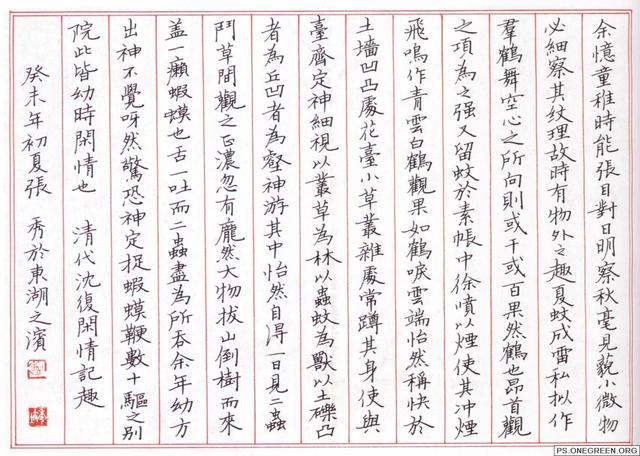 余憶童稚時能張目對日明察秋毫見藐小微物
必細察其紋理故時有物外之趣夏蚊成雷私擬作
羣鶴舞空心之所向則或千或百果然鶴也昂首觀
之項為之强又留蚊於素帳中徐噴以煙使其冲煙
飛鳴作青雲白鶴觀果如鶴唳雲端怡然稱快於
土墻凹凸處花臺小草叢雜處常蹲其身使與
臺齊定神細視以叢草為林以蟲蚊為獸以土礫凸
者為丘凹者為壑神游其中怡然自得一日見二蟲
鬥草間觀之正濃忽有龐然大物拔山倒樹而來
盖一癩蝦蟆也舌一吐而二蟲盡為所吞余年幼方
出神不覺呀然驚恐神定捉蝦蟆鞭數十驅之别
院此皆幼時閑情也 清代沈復閑情記趣
癸未年初夏張 秀於東湖之濱
PS.ONEGREEN.ORG